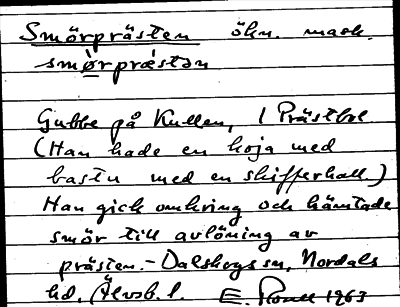 Smörprästen ökn. mask.
smø̀rpræ̀stən
Gubbe på Kullen, i Prästbol
(Han hade en koja med
bastu med en skifferhall.)
Han gick omkring och hämtade
smör till avlöning av
prästen. - Dalskogs sn, Nordals
hd, Älvsb. l. E. 1963